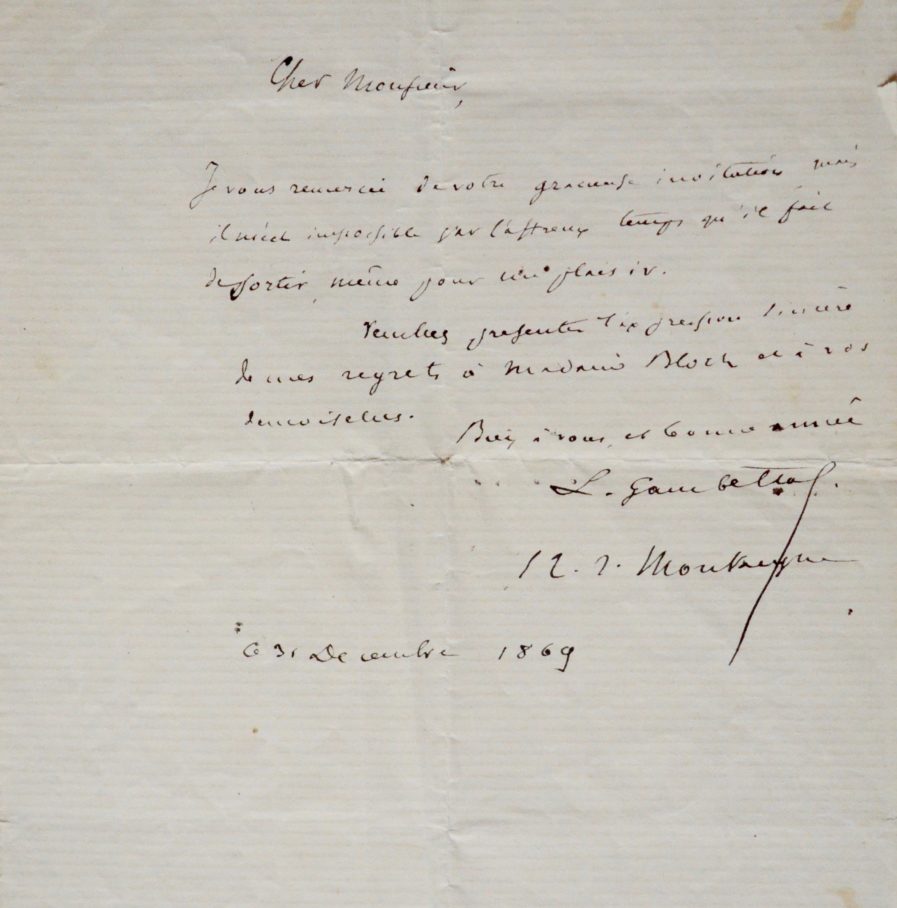 Cher Monsieur,
Je vous remercie de votre gracieuse invitation mais
il m'est impossible par l'affreux temps qu'il fait
de sortir, même pour un plaisir.
Veuillez présenter l'expression sincère
de mes regrets à Madame Bloch et à vos
demoiselles.
Bien à vous, et bonne année
L. Gambetta.
12. r. Montaigne
Ce 31 Decembre 1869